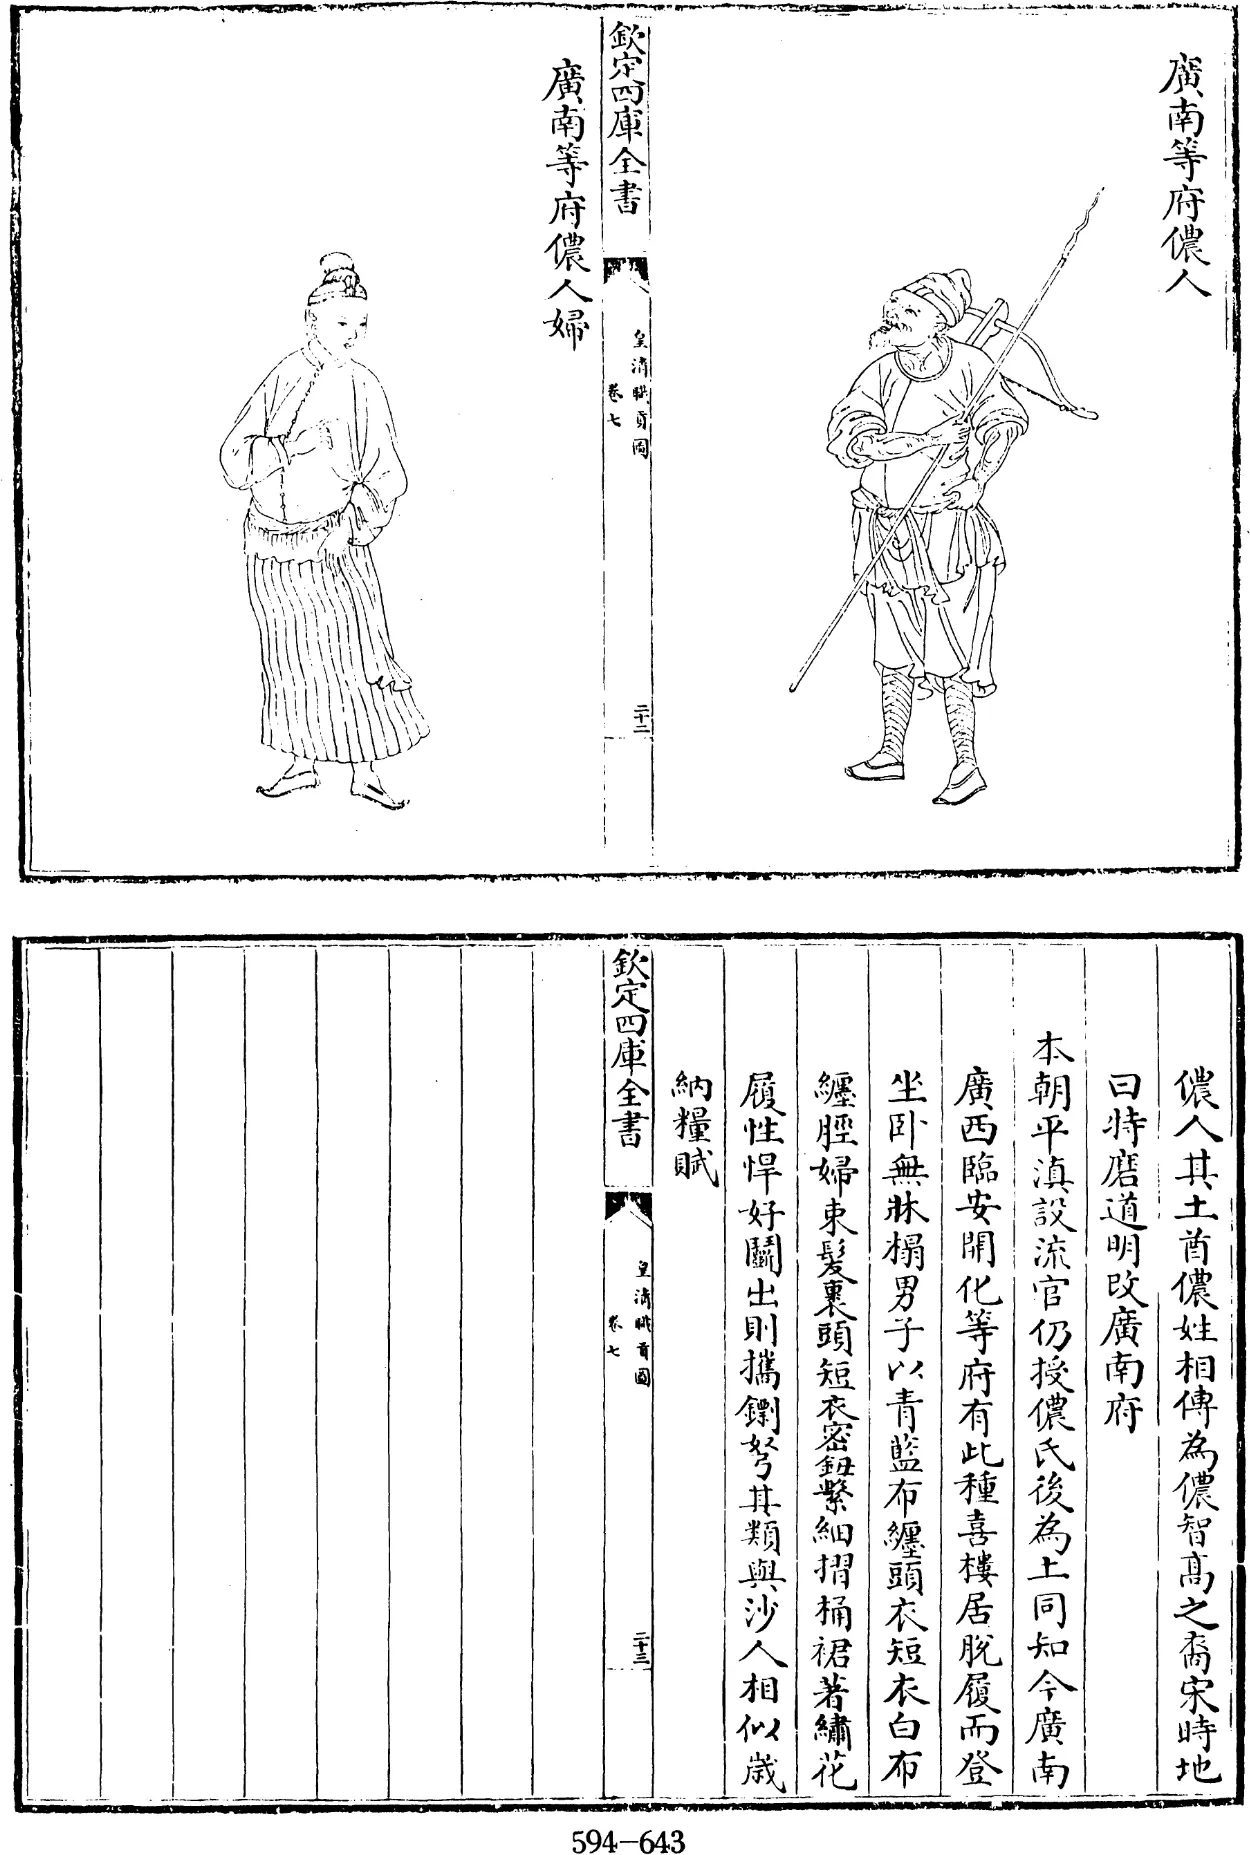 廣南等府儂人
欽定四庫全書
皇清職貢圖
卷七
二十二
廣南等府儂人婦
儂人其土酋儂姓相傳為儂智高之裔宋時地
曰特磨道明改廣南府
本朝平滇設流官仍授儂氏後為土同知今廣南
廣西臨安開化等府有此種喜樓居脫履而登
坐卧無牀榻男子以青藍布纏頭衣短衣白布
纏脛婦束髮裹頭短衣密鈕繫細摺桶裙著繡花
履性悍好鬬出則攜鏢弩其類與沙人相似歲
納糧賦
欽定四庫全書
皇清職貢圖
卷七
二十三
594-643